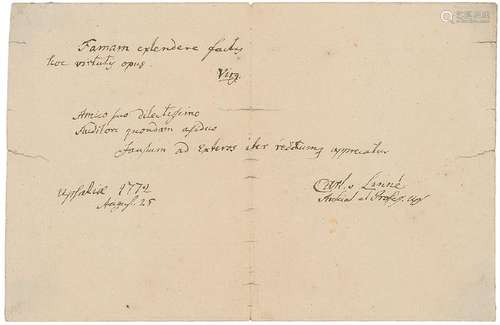 Famam extendere factis
hoc virtutis opus.
Virg.
Amico suo dilectissimo
Auditori quondam assiduo
faustum ad Exteros iter reditumq apprecatur
Upsaliæ 1772
August. 25
Carl v Linné
Archiat et Profess. Ups